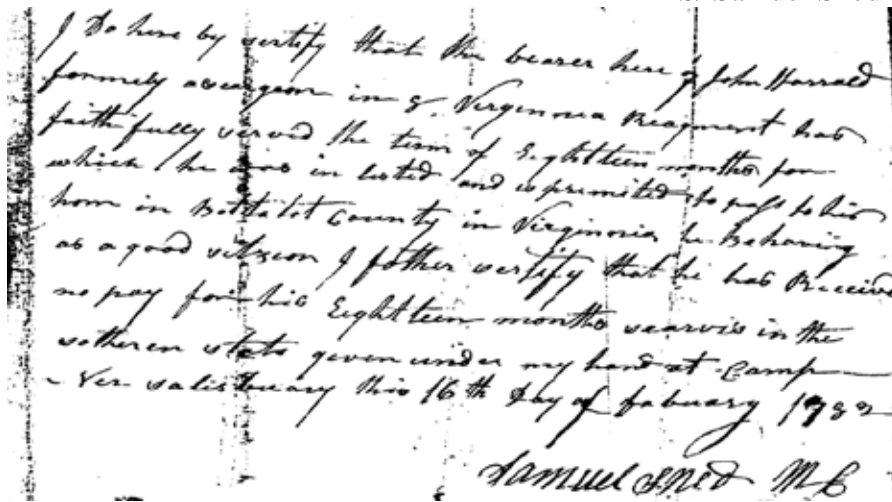 I Do here by sertify that the bearer here of John Harrald
formely aseargeon in ye Virginnia Reagment has
faithfully served the term of Eightteen months for
which he was in listed and is premited to pass to his
hom in Bottatot County in Virginnia he Behaving
as a good sitizeon I fother sertify that he has Received
no pay for his Eightteen months searvis in the
sotheren state given under my hand at Camp
Ner this 16th Day of fabuary 1782
Samuel Sned